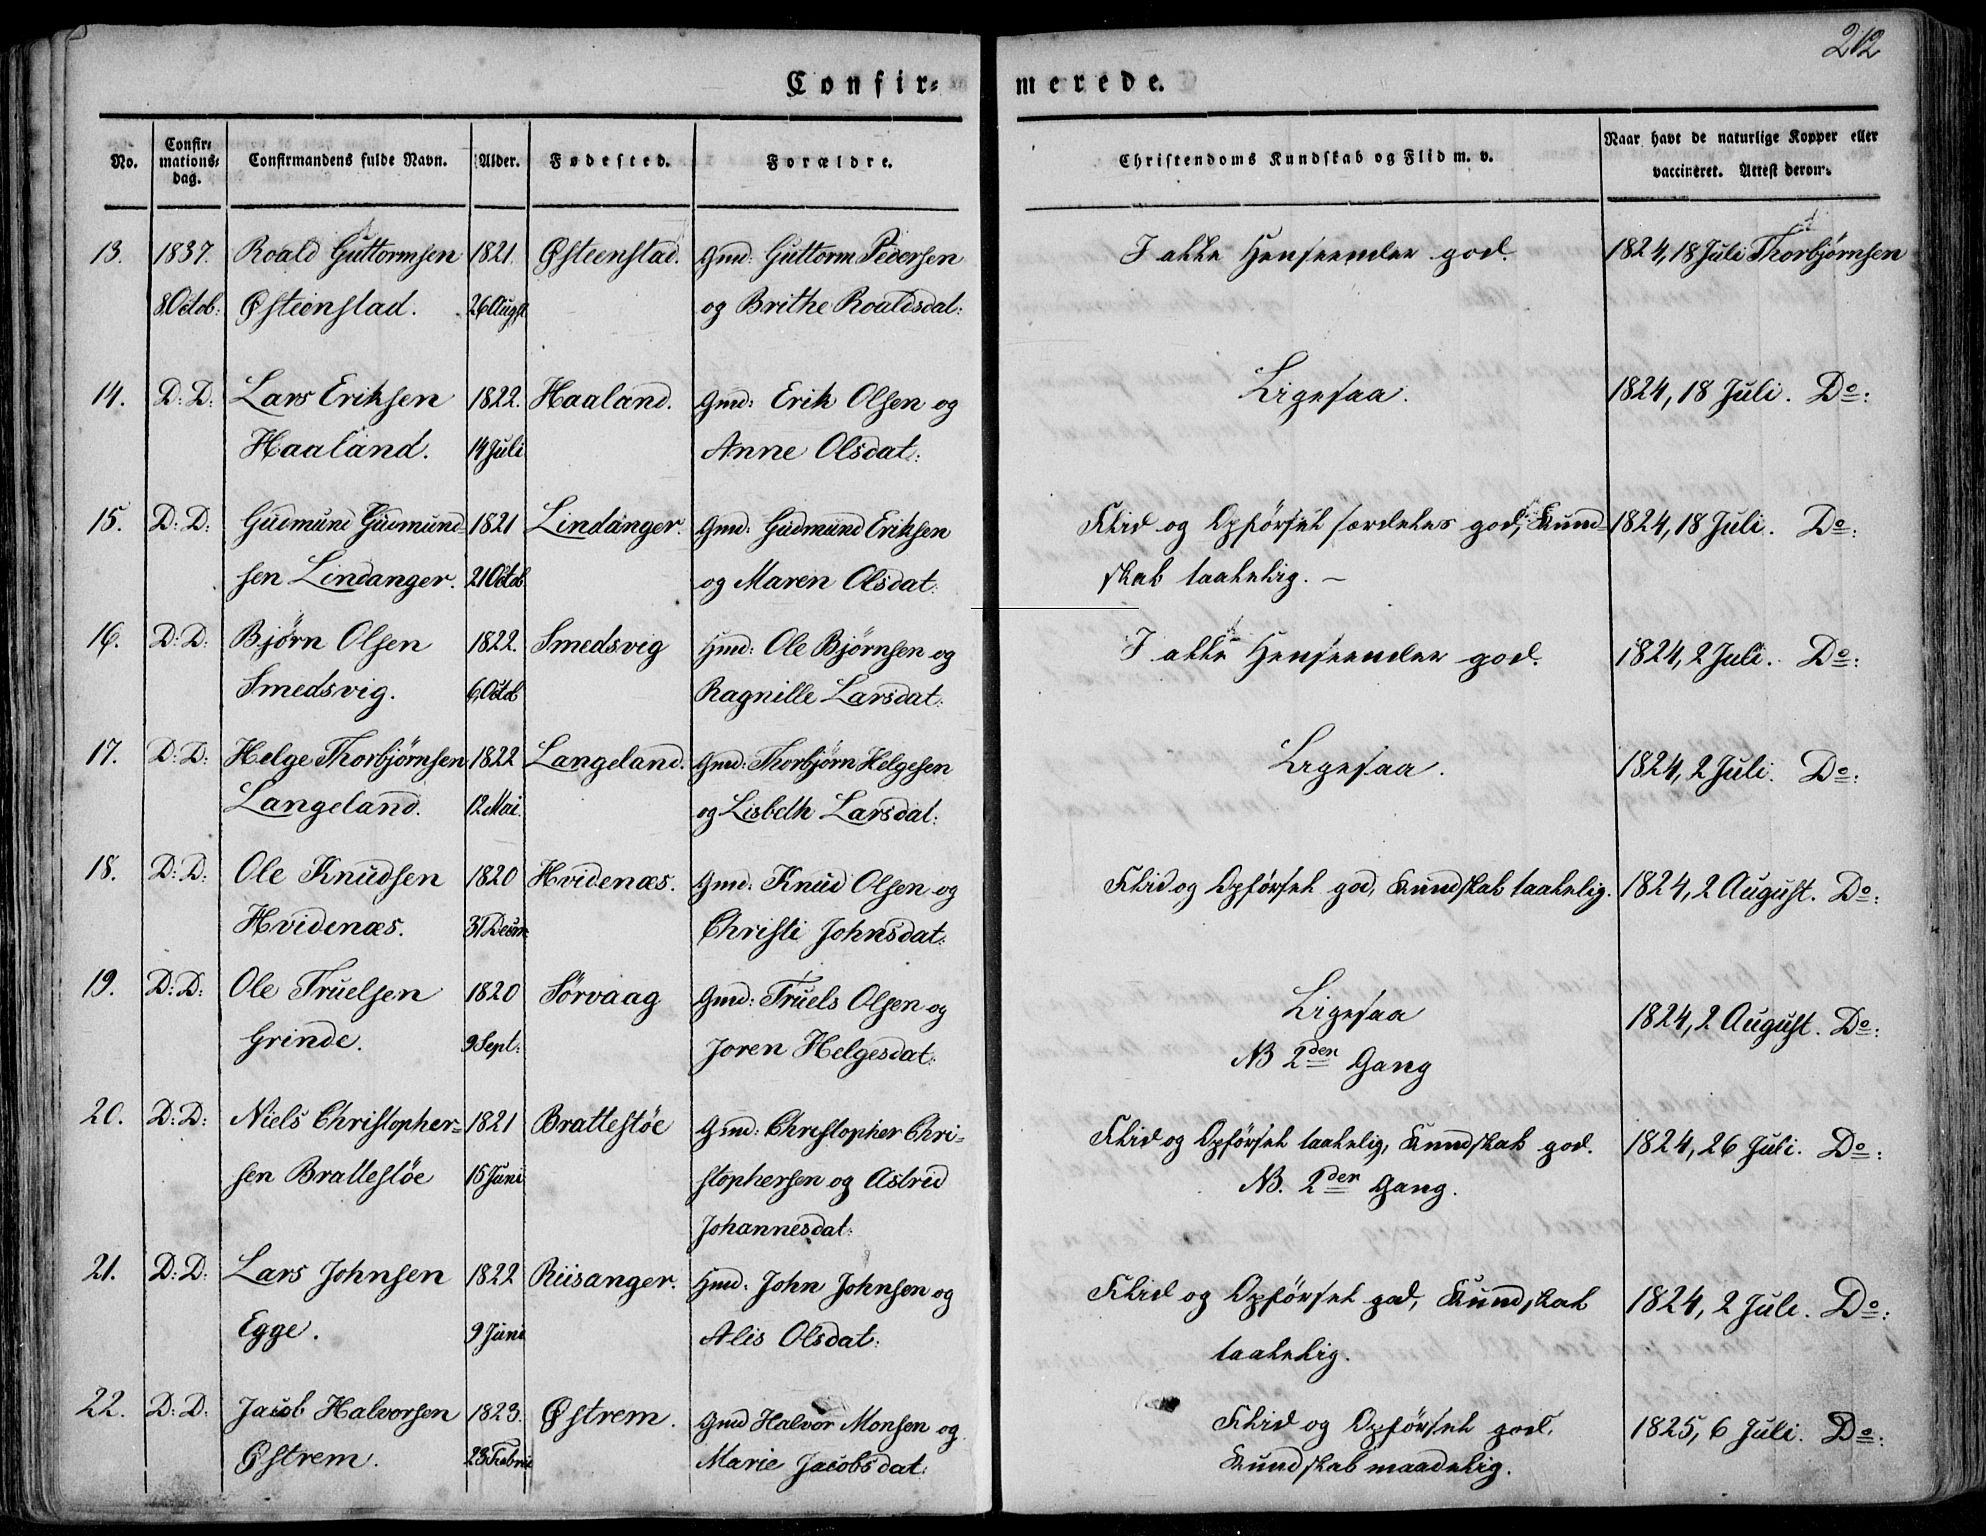 212
Confir= merede.
No. | Confir= mations= dag. | Confirmandens fulde Navn. | Alder. | Fødested. | Forældre. | Christendoms Kundskab og Flid m. v. | Naar havt de naturlige Kopper eller vaccineret. Attest derom.
13. | 1837. | Roald Guttormsen | 1821 | Østeenstad. | Gmd: Guttorm Pedersen | I alle Henseender god. | 1824, 18 Juli Thorbjørnsen
8 Octob: | Østeenstad. | 26 Augst | og Brithe Roaldsdat:
14. | D: D: | Lars Eriksen | 1822. | Haaland. | Gmd: Erik Olsen og | Ligesaa. | 1824, 18 Juli. Do:
Haaland. | 14 Juli | Anne Olsdat:
15. | D: D: | Gudmund Gudmund= | 1821 | Lindanger. | Gmd: Gudmund Eriksen | Flid og Opførsel særdeles god, Kund= | 1824, 18 Juli. Do:
sen Lindanger. | 21 Octob | og Maren Olsdat: | skab taalelig. —
16. | D: D: | Bjørn Olsen | 1822. | Smedsvig | Hmd: Ole Bjørnsen og | I alle Henseender god. | 1824, 2 Juli. Do:
Smedsvig. | 6 Octob | Ragnille Larsdat:
17. | D: D: | Helge Thorbjørnsen | 1822 | Langeland. | Gmd: Thorbjørn Helgesen | Ligesaa. | 1824, 2 Juli. Do:
Langeland. | 12 Mai. | og Lisbeth Larsdat:
18. | D: D: | Ole Knudsen | 1820 | Hvidenæs. | Gmd: Knud Olsen og | Flid og Opførsel god, Kundskab taalelig. | 1824, 2 August. Do:
Hvidenæs. | 31 Decem | Christi Johnsdat:
19. | D: D: | Ole Truelsen | 1820 | Sørvaag | Gmd: Truels Olsen og | Ligesaa | 1824, 2 August. Do:
Grinde. | 9 Sept: | Joren Helgesdat: | NB 2den Gang
20. | D: D: | Niels Christopher= | 1821 | Brattestøe | Gmd: Christopher Chri= | Flid og Opførsel taalelig, Kundskab god. | 1824, 26 Juli. Do:
sen Brattestøe | 15 Juni | stophersen og Astrid | NB. 2den Gang.
Johannesdat:
21. | D: D: | Lars Johnsen | 1822 | Riisanger. | Hmd: John Johnsen og | Flid og Opførsel god, Kundskab | 1824, 2 Juli. Do:
Egge. | 9 Juni | Alis Olsdat: | taalelig.
22. | D: D: | Jacob Halvorsen | 1823. | Østrem. | Gmd Halvor Monsen og | Flid og Opførsel god. | 1825, 6 Juli. Do:
Østrem. | 23 Februa | Marie Jacobsdat: | Kundskab maadelig.